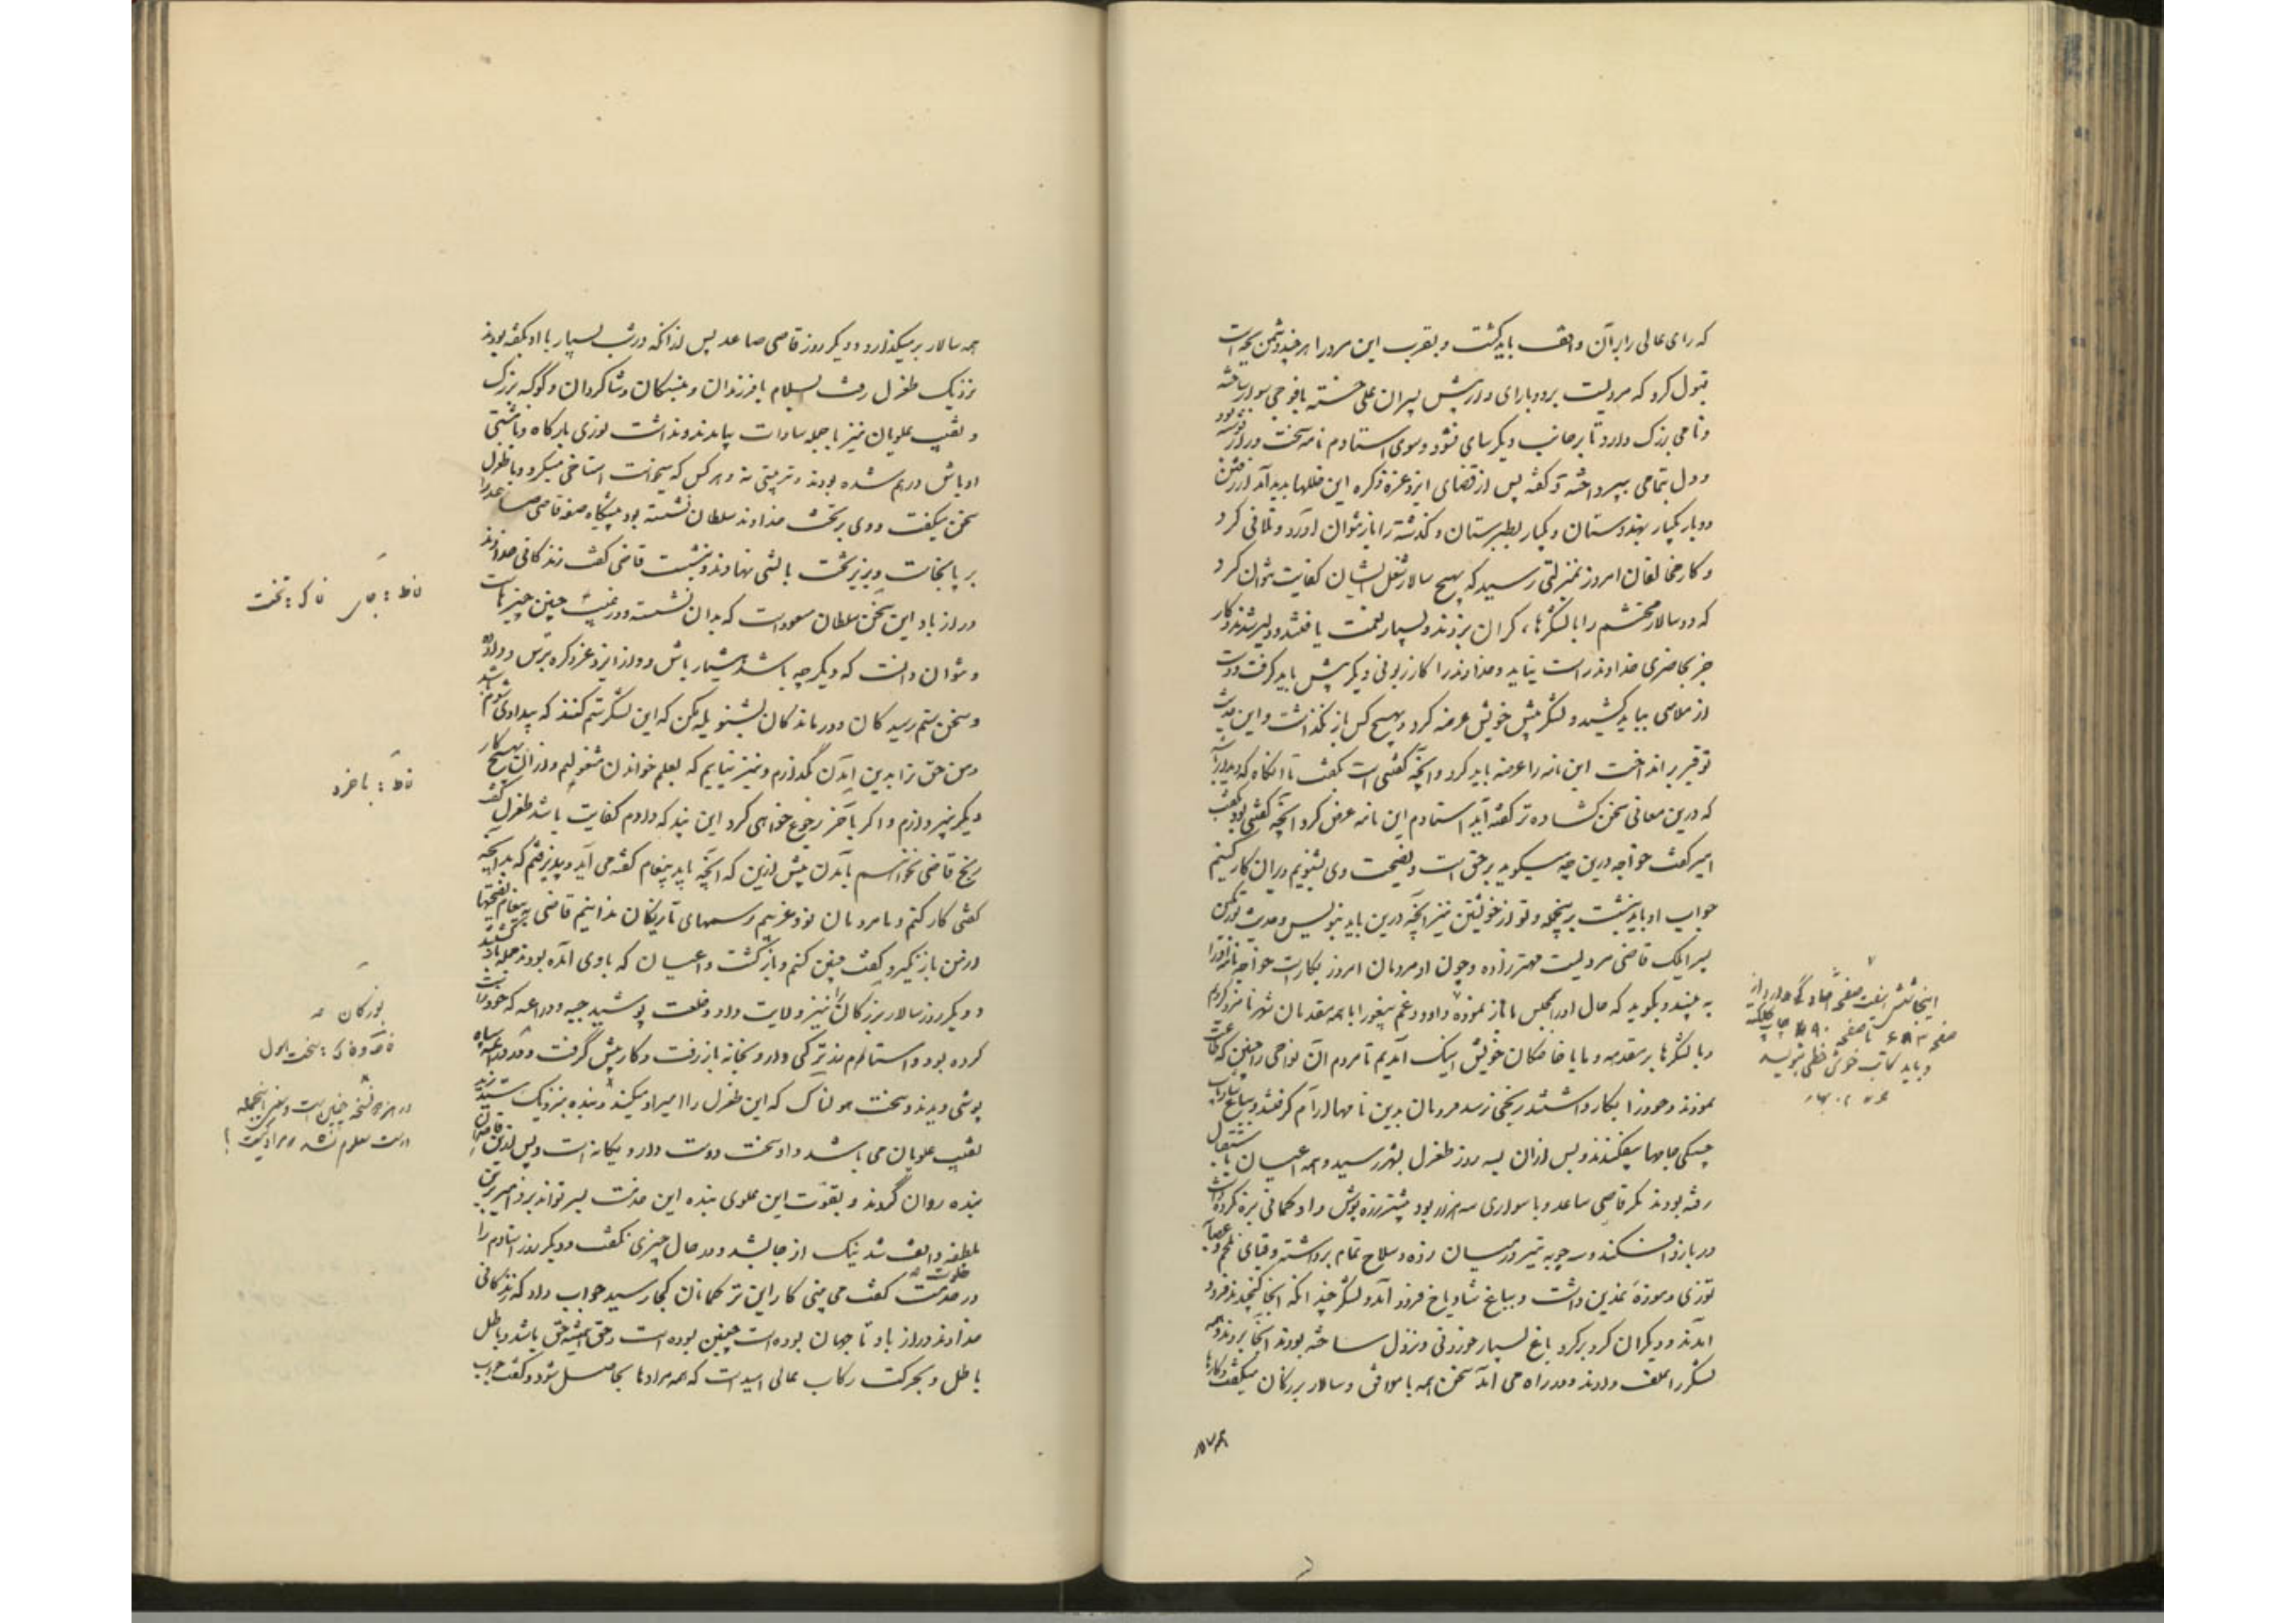 که رای عالی را بر آن واقف باید گشت و بقرب این مرد را هر چند دشمن بچه است
قبول کرد که مردیست بردوبارای و در پیش پسران علی خسته با فوجی سوار ساخته
ونامی بزرگ دارد تا بر جانب دیگر سای نشود و سوی استادم نامه سخت دراز نوشته بود
و دل بتمامی بپرداخته و گفته پس از قضای ایزد عز ذکره این خللها پدید آمد از رفتن
دو بار یکبار بهندوستان و یکبار بطبرستان و گذشته را باز نتوان آورد و تلافی کرد
و کار مخالفان امروز بمنزلتی رسید که بهیچ سالار شغل ایشان کفایت نتوان کرد
که دو سالار محتشم را با لشکرهاء گران بزدند و بسیار نعمت یافتند و دلیر شدند و کار
جز بحاضری خداوند راست نیاید و خداوند را کار از لونی دیگر پیش باید گرفت و دست
از ملاهی بباید کشید و لشکر پیش خویش عرضه کرد و بهیچ کس باز نگذاشت و این حدیث
توفیر بر انداخت این نامه را عرضه باید کرد و آنچه گفتنی است بگفت تا آنگاه که دیدار آید
که درین معانی سخن گشاده‌تر گفته آید استادم این نامه عرض کرد آنچه گفتنی بود بگفت
امیر گفت خواجه درین چه میگوید بر حق است و نصیحت وی بشنویم و بران کار کنیم
جواب او باید نبشت برینجمله و تو از خویشتن نیز آنچه درین باید بنویس و حدیث بورتگین
پسر ایلک ماضی مردیست مهترزاده و چون او مردمان امروز بکارست خواجه نامه او را
به بیند و بگوید که حال او را بمجلس ما باز نموده و داوود عم بیغو را با همه مقدمان شهر نامزد کردیم
و با لشکرها بر مقدمه و ما با خاصگان خویش اینک آمدیم تا مردم آن نواحی را چنین که طاعت
نمودند و خود را بکار داشتند رنجی نرسد مردمان بدین نامها آرام گرفتند و بباغ شادیاخ
حسنکی جامها بیفکندند و پس ازان بسه روز طغرل بشهر رسید و همه اعیان باستقبال
رفته بودند مگر قاضی صاعد و با سواری سه هزار بود بیشتر زره پوش و او کمانی بزه کرده داشت
در بازو افکنده و سه چوبه تیر در میان زده و سلاح تمام برداشته و قبای ملحم و عصابه
توزی و موزه نمدین داشت و بباغ شادیاخ فرود آمد و لشکر چندانکه آنجا گنجیدند فرود
آمدند و دیگران گرد بر گرد باغ بسیار خوردنی و نزول ساخته بودند آنجا بردند و همه
لشکر را علف دادند و در راه می آمد سخن همه با موافق و سالار بزرگان میگفت و کارها
اینجا شش هفت صفحه افتادگی دارد از
صفحه ۶۸۳ تا صفحه ۶۹۰ چاپ کلکته
و باید کاتب خوش خطی بنویسد
همه سالار بر میگذارد و دیگر روز قاضی صاعد پس ازانکه در شب بسیار با او گفته بودند
نزدیک طغرل رفت بسلام با فرزندان و نبسگان و شاگردان و کوکبه بزرگ
و نقیب علویان نیز با جمله سادات بیامدند و نداشت نوری بارگاه و مشتی
اوباش درهم شده بودند و ترتیبی نه و هر کس که میخواست استاخی میکرد و با طغرل
سخن میگفت و وی بر تخت خداوند سلطان نشسته بود پیشگاه صفه قاضی صاعد را
بر پا خاست و بزیر تخت بالشی نهادند و بنشست قاضی گفت زندگانی خداوند
دراز باد این تخت سلطان مسعود است که بدان نشسته و در غیب چنین چیزهاست
و نتوان دانست که دیگر چه باشد هشیار باش و از ایزد عز ذکره بترس و داد ده
و سخن ستم رسیدگان و درماندگان بشنو یله مکن که این لشکر ستم کنند که بیدادی شوم باشد
و من حق ترا بدین آمدن گذاردم و نیز نیایم که بعلم خواندن مشغولیم و ازان بهیچ کار
دیگر نپردازم و اگر با خرد رجوع خواهی کرد این پند که دادم کفایت باشد طغرل گفت
رنج قاضی نخواهم بآمدن بیش ازین که آنچه باید بپیغام گفته می آید و پذیرفتم که بدانچه
گفتی کار کنم و ما مردمان نو و غریبیم رسمهای تازیکان ندانیم قاضی به پیغام نصیحتها
از من باز نگیرد گفت چنین کنم و بازگشت و اعیان که با وی آمده بودند جمله بازگشتند
و دیگر روز سالار بزرگان را نیز ولایت داد و خلعت پوشید جبه و دراعه که خود راست
کرده بود و استام زر ترکی وار و بخانه باز رفت و کار پیش گرفت و در دراعه سیاه
پوشی دیدند سخت هولناک که این طغرل را امیر او میکند و بنده بنزدیک سید زید
نقیب علویان می باشد و او سخت دوست دار و یگانه است و پس ازین قاصدان
بنده روان گردند و بقوت این علوی بنده این خدمت بسر تواند برد امیر برین
ملطفه واقف شد نیک از جا بشد و در حال چیزی نگفت و دیگر روز استادم را
در خلوت گفت می بینی کار این ترکمانان کجا رسید جواب داد که زندگانی
خداوند دراز باد تا جهان بوده است چنین بوده است و حق همیشه حق باشد و باطل
باطل و بحرکت رکاب عالی امید است که همه مرادها بحاصل شود و گفت جواب
تخت
باخرد
بوزگان
سخت احول
در هر دو نسخه چنین است و معنی اینجمله
درست معلوم نشد مراد کیست؟